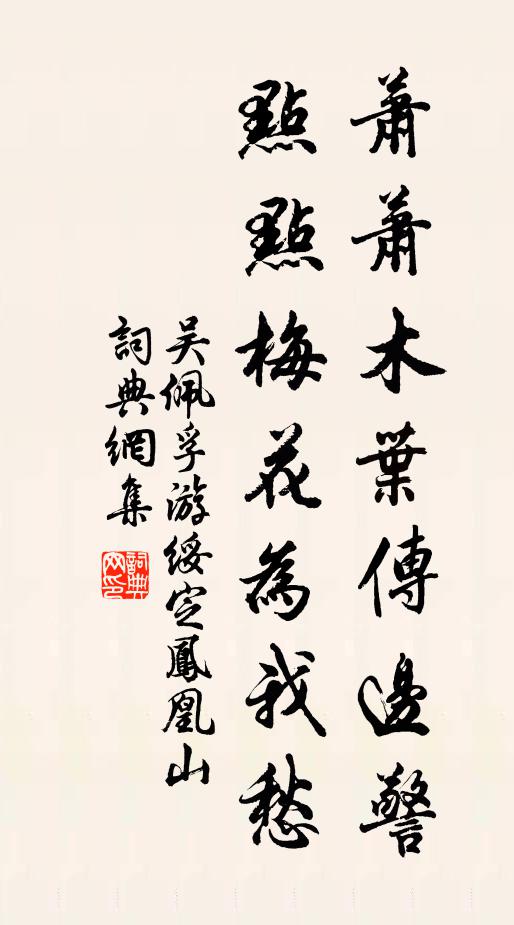 蕭蕭木葉傳邊警
點點梅花為我愁
吴佩孚游綏定鳳凰山
詞典網集
詞典網印